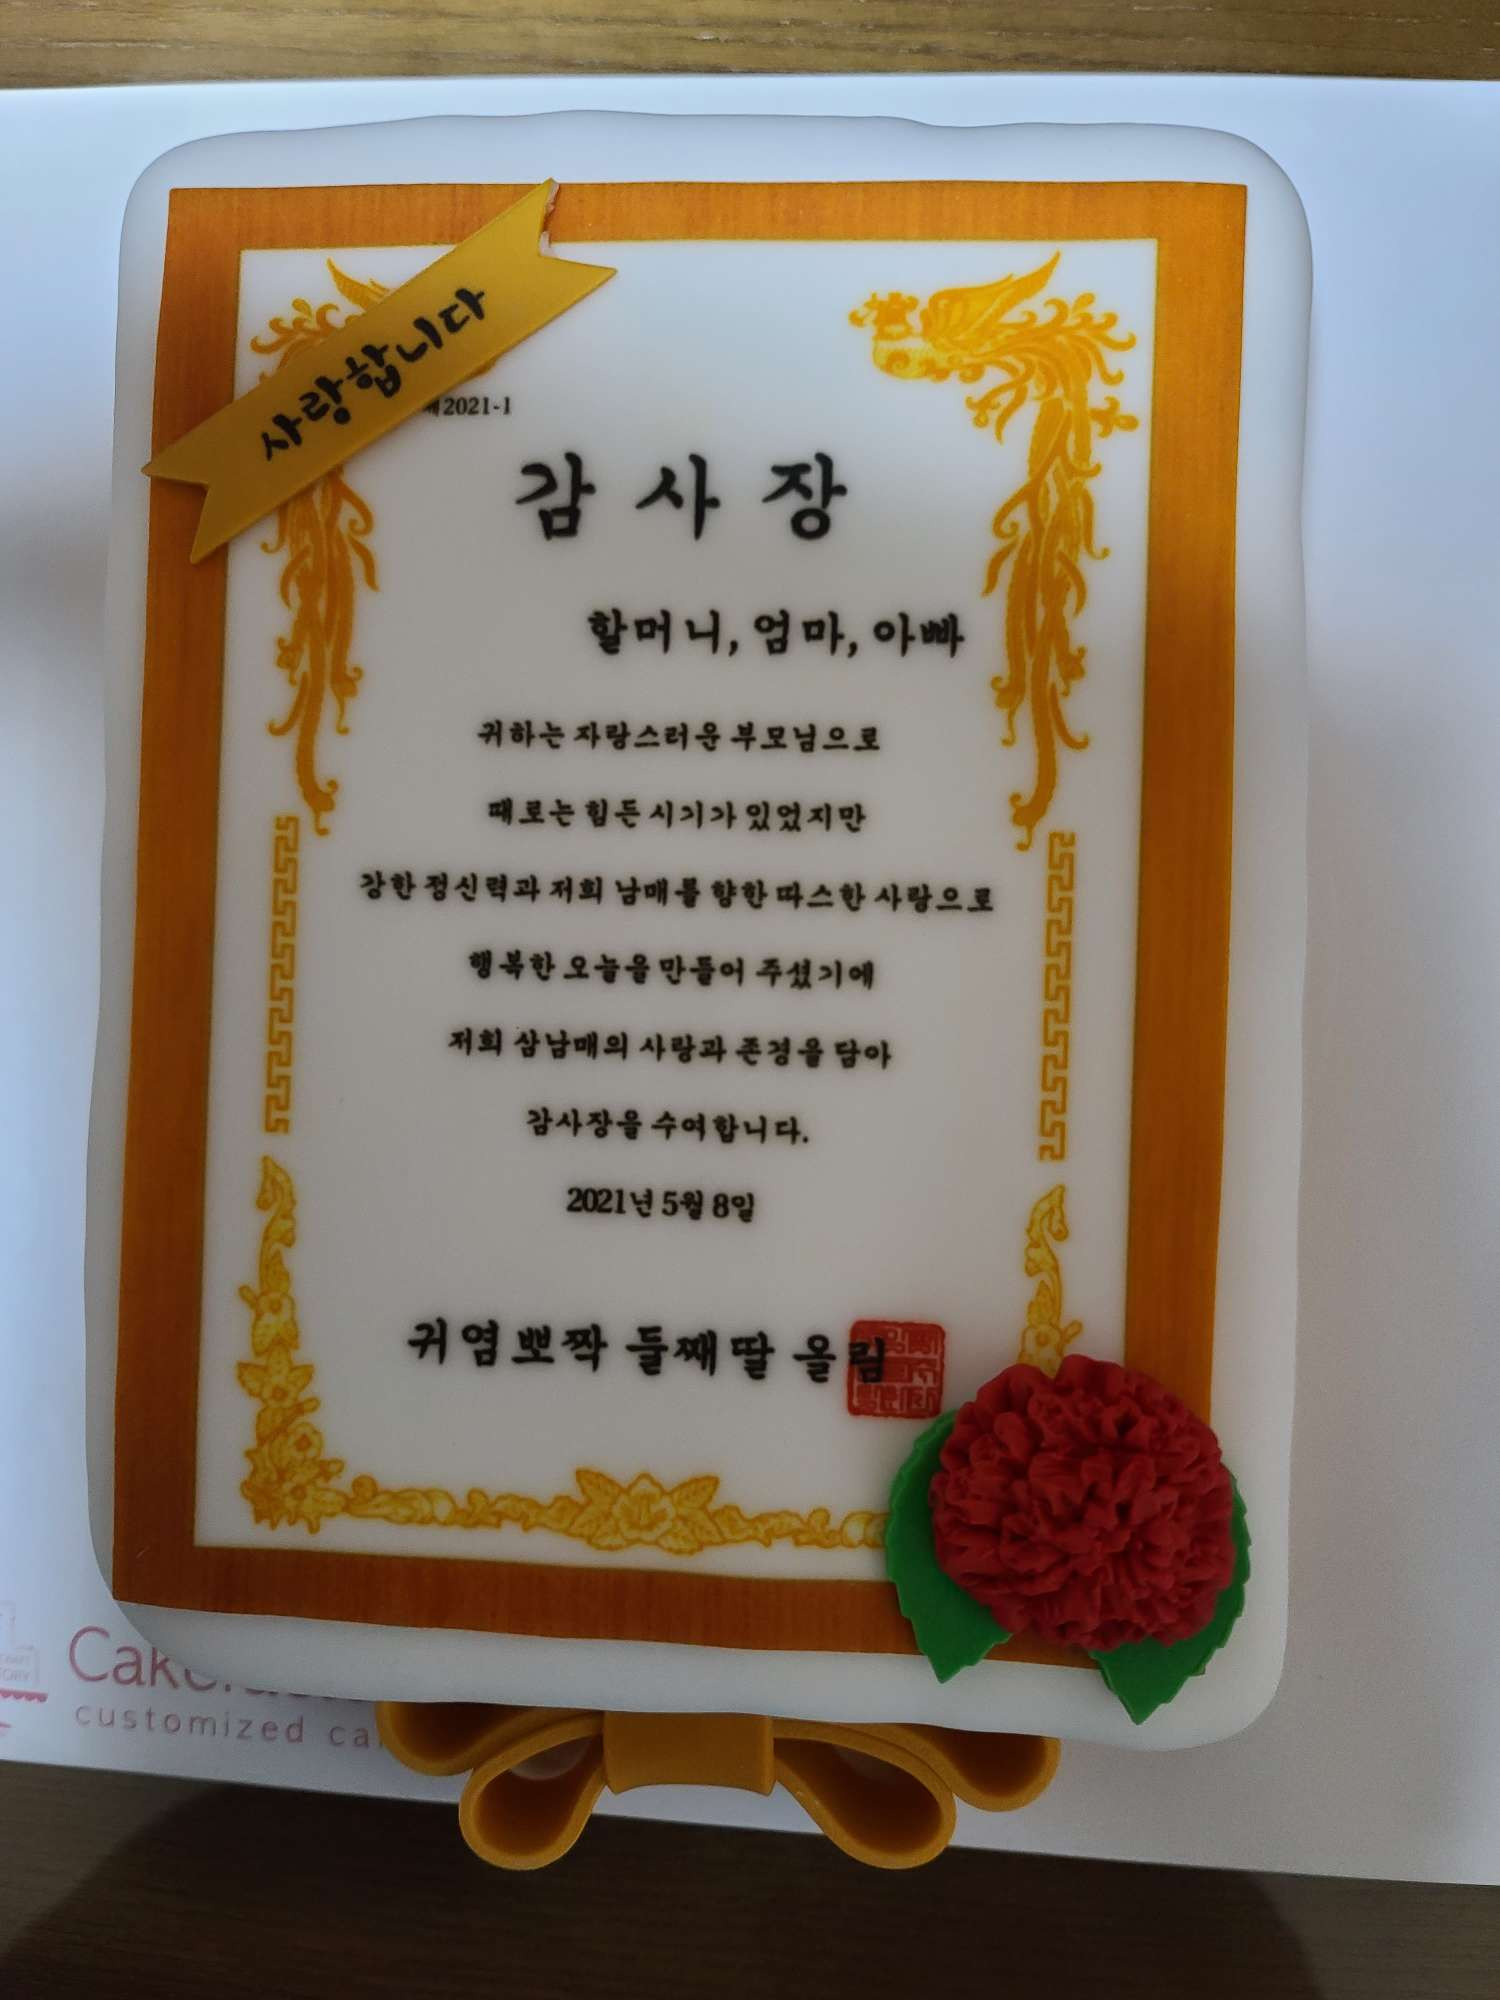 사랑합니다
2021-1
감사장
할머니, 엄마, 아빠
귀하는 자랑스러운 부모님으로
때로는 힘든 시기가 있었지만
강한 정신력과 저희 남매를 향한 따스한 사랑으로
행복한 오늘을 만들어 주셨기에
저희 삼남매의 사랑과 존경을 담아
감사장을 수여합니다.
2021년 5월 8일
귀염뽀짝 둘째딸 올림
customized